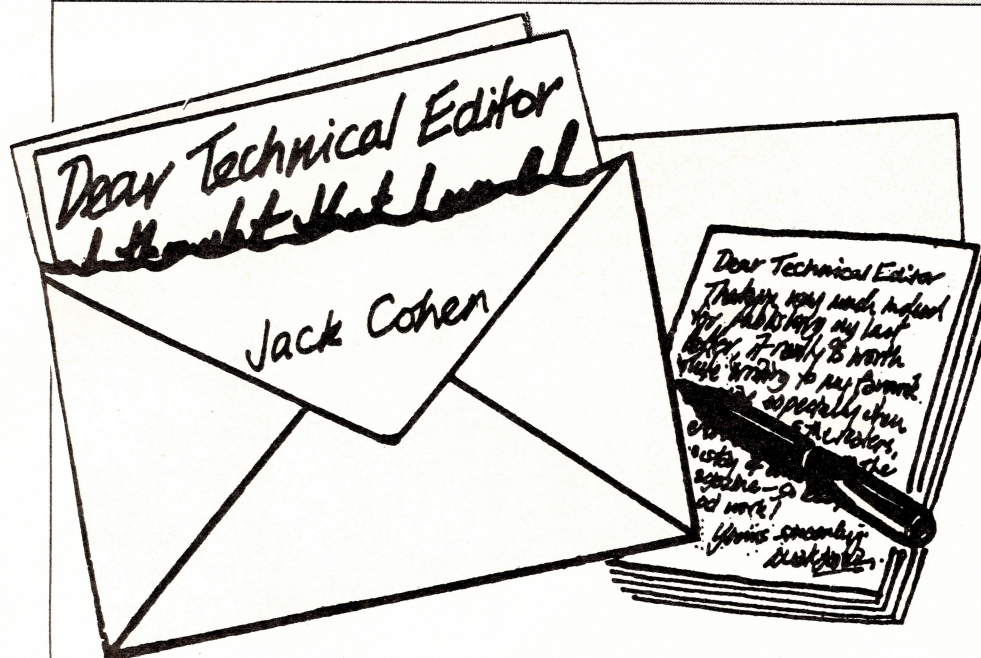 Dear Technical Editor
I thought that I would
Jack Cohen
Dear Technical Editor
Thankyou very much indeed
for publishing my last
letter, it really is worth
while writing to my favourite
especially when
the
Yours sincerely